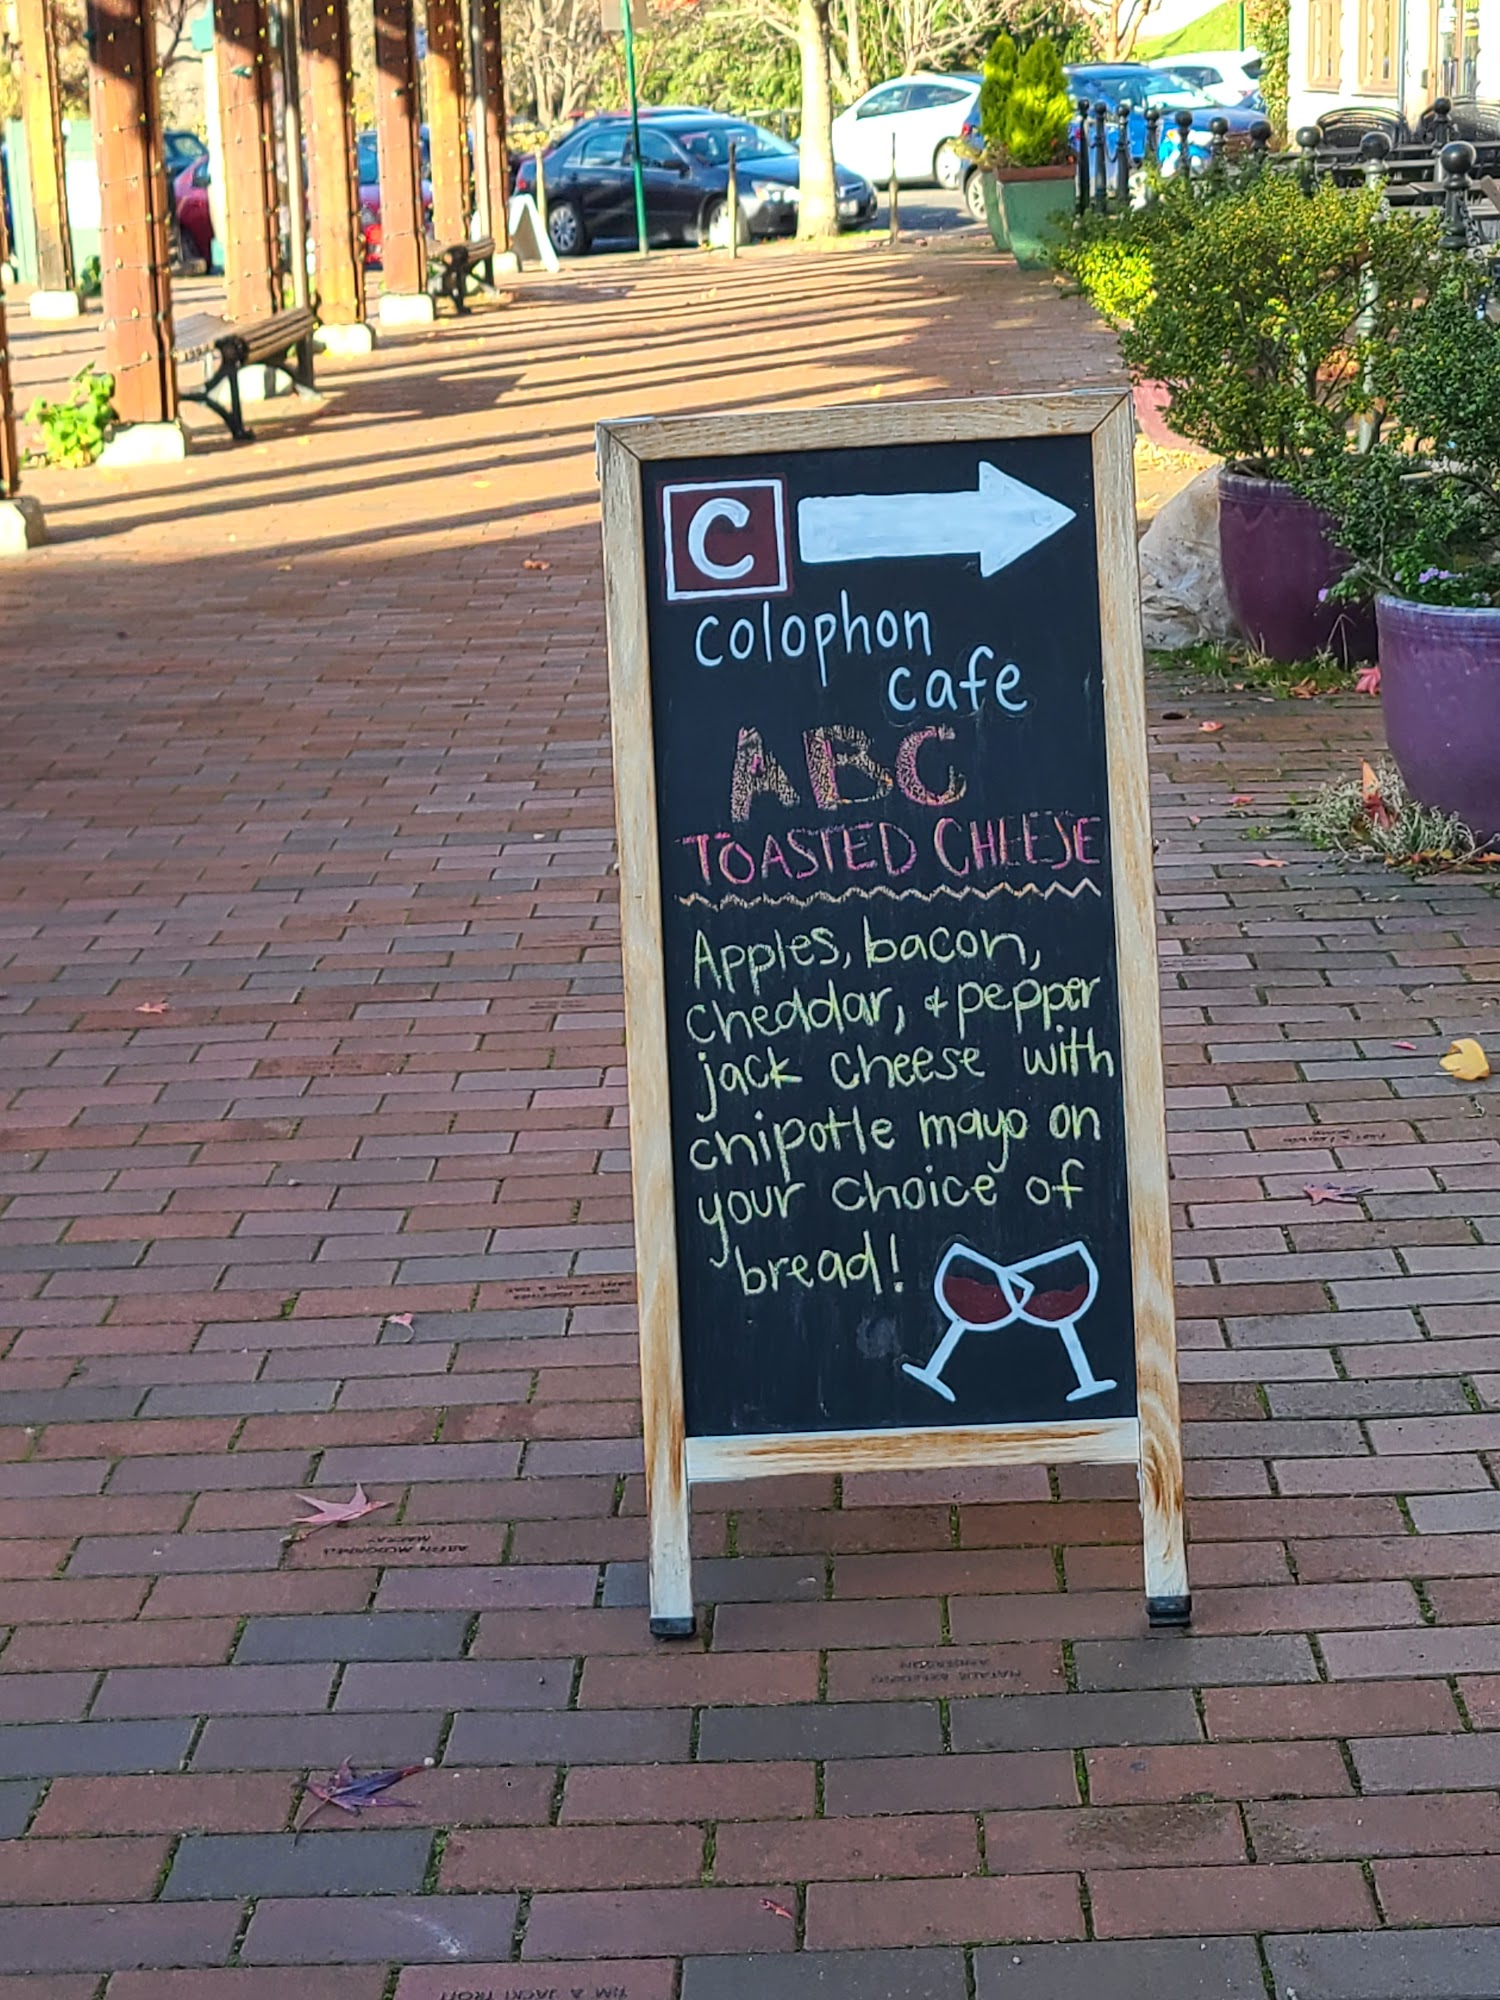 C
colophon
cafe
ABC
TOASTED CHEESE
Apples, bacon,
cheddar, + pepper
jack cheese with
chipotle mayo on
your choice of
bread!